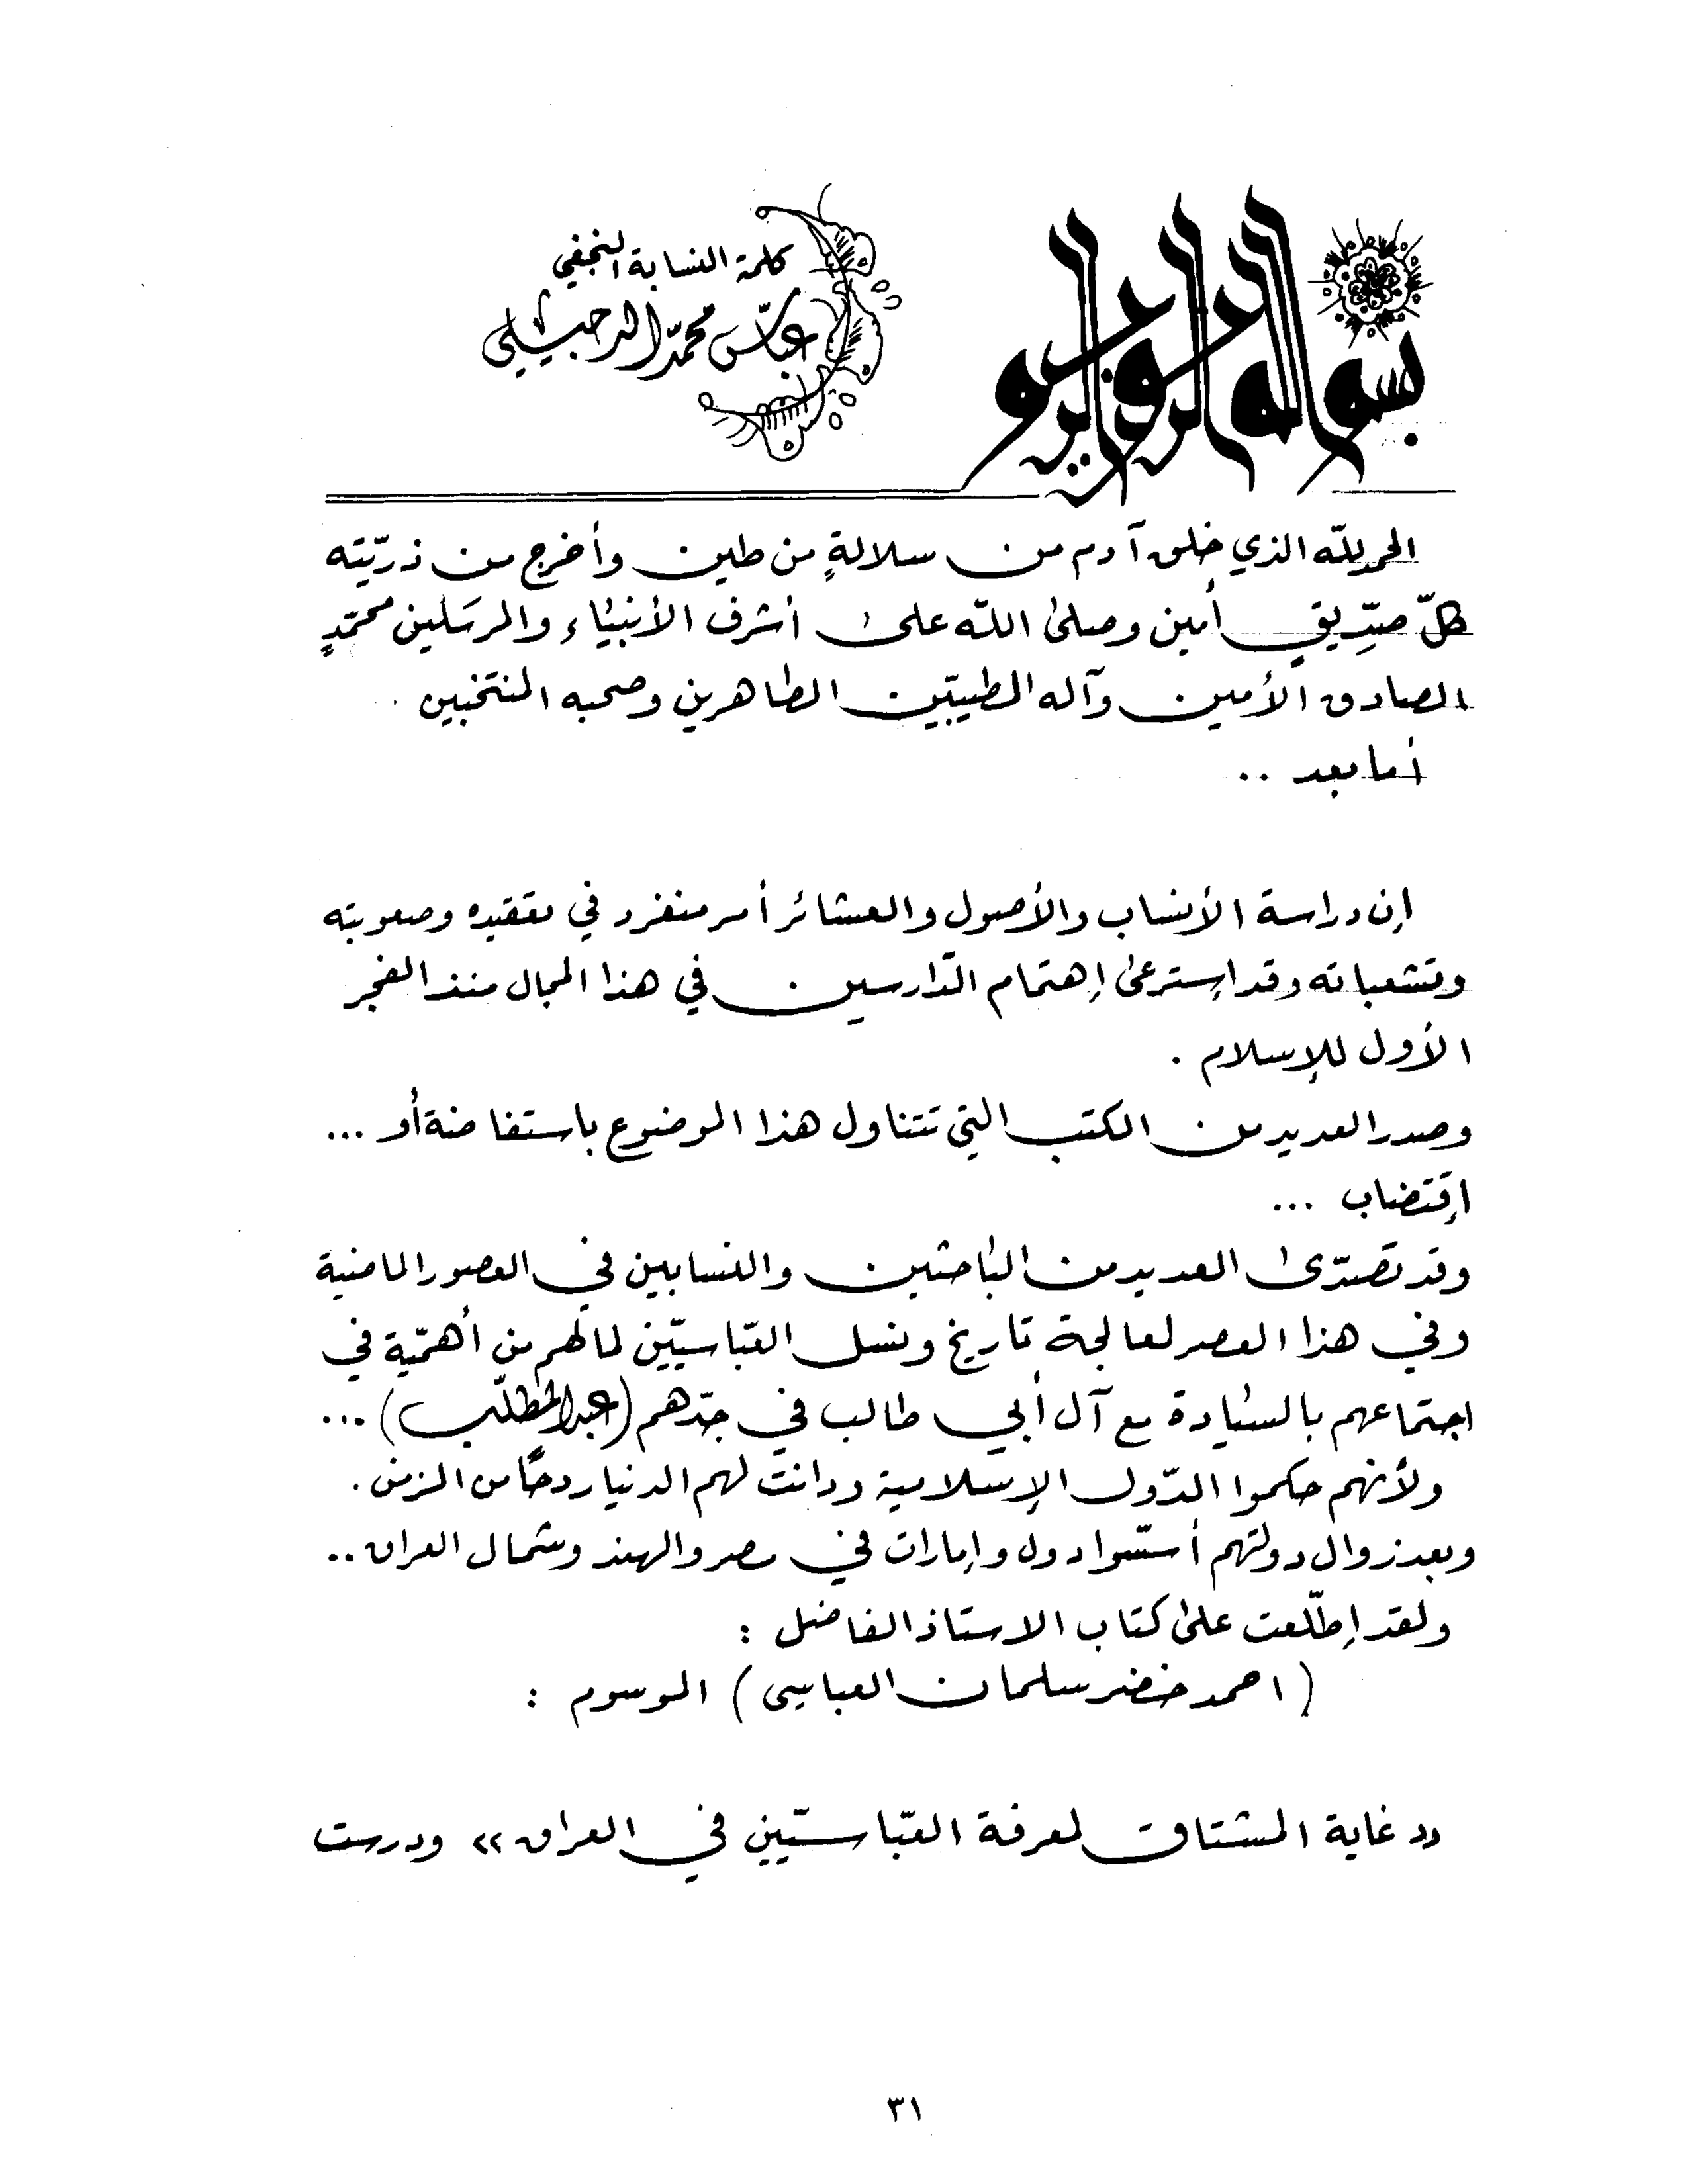 بسم الله الرحمن الرحيم
كلمة النسابة النجفي
عباس محمد الدجيلي
الحمد لله الذي خلق آدم من سلالةٍ من طين وأخرج من ذرّيّته
كلّ صدِّيقٍ أمين وصلى اللّه على أشرف الأنبياء والمرسَلين محمّدٍ
الصادق الأمين وآله الطيبّين الطاهرين وصحبه المنتخبين .
أما بعد ..
إن دراسة الأنساب والأصول والعشائر أمر منفرد في تعقيده وصعوبته
وتشعباته وقد إسترعى إهتمام الدّارسين في هذا المجال منذ الفجر
الأول للإسلام .
وصدر العديد من الكتب التي تتناول هذا الموضوع باستفاضة أو ...
إقتضاب ...
وقد تصَدّى العديد من الباحثين والنسابين في العصور الماضية
وفي هذا العصر لمعالجة تاريخ ونسل العبّاسيّين لما لهم من أهمّية في
اجتماعهم بالسيادة مع آل أبي طالب في جدّهم (عبد المطلّب) ...
ولأنهم حكموا الدّول الإسلامية ودانت لهم الدنيا ردحًا من الزمن .
وبعد زوال دولتهم أسّسوا دول وإمارات في مصر والهند وشمال العراق ..
ولقد إطلّعت على كتاب الاستاذ الفاضل :
( احمد خضر سلمان العباسي ) الموسوم :
«غاية المشتاق لمعرفة العبّاسيّين في العراق» ودرست
٣١